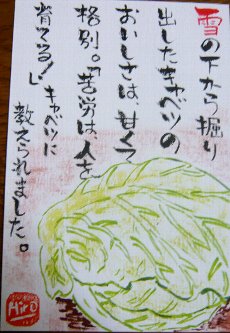 雪の下から掘り
出したキャベツの
おいしさは、甘くて
格別。「苦労は、人を
育てる！」キャベツに
教えられました。
Hiro